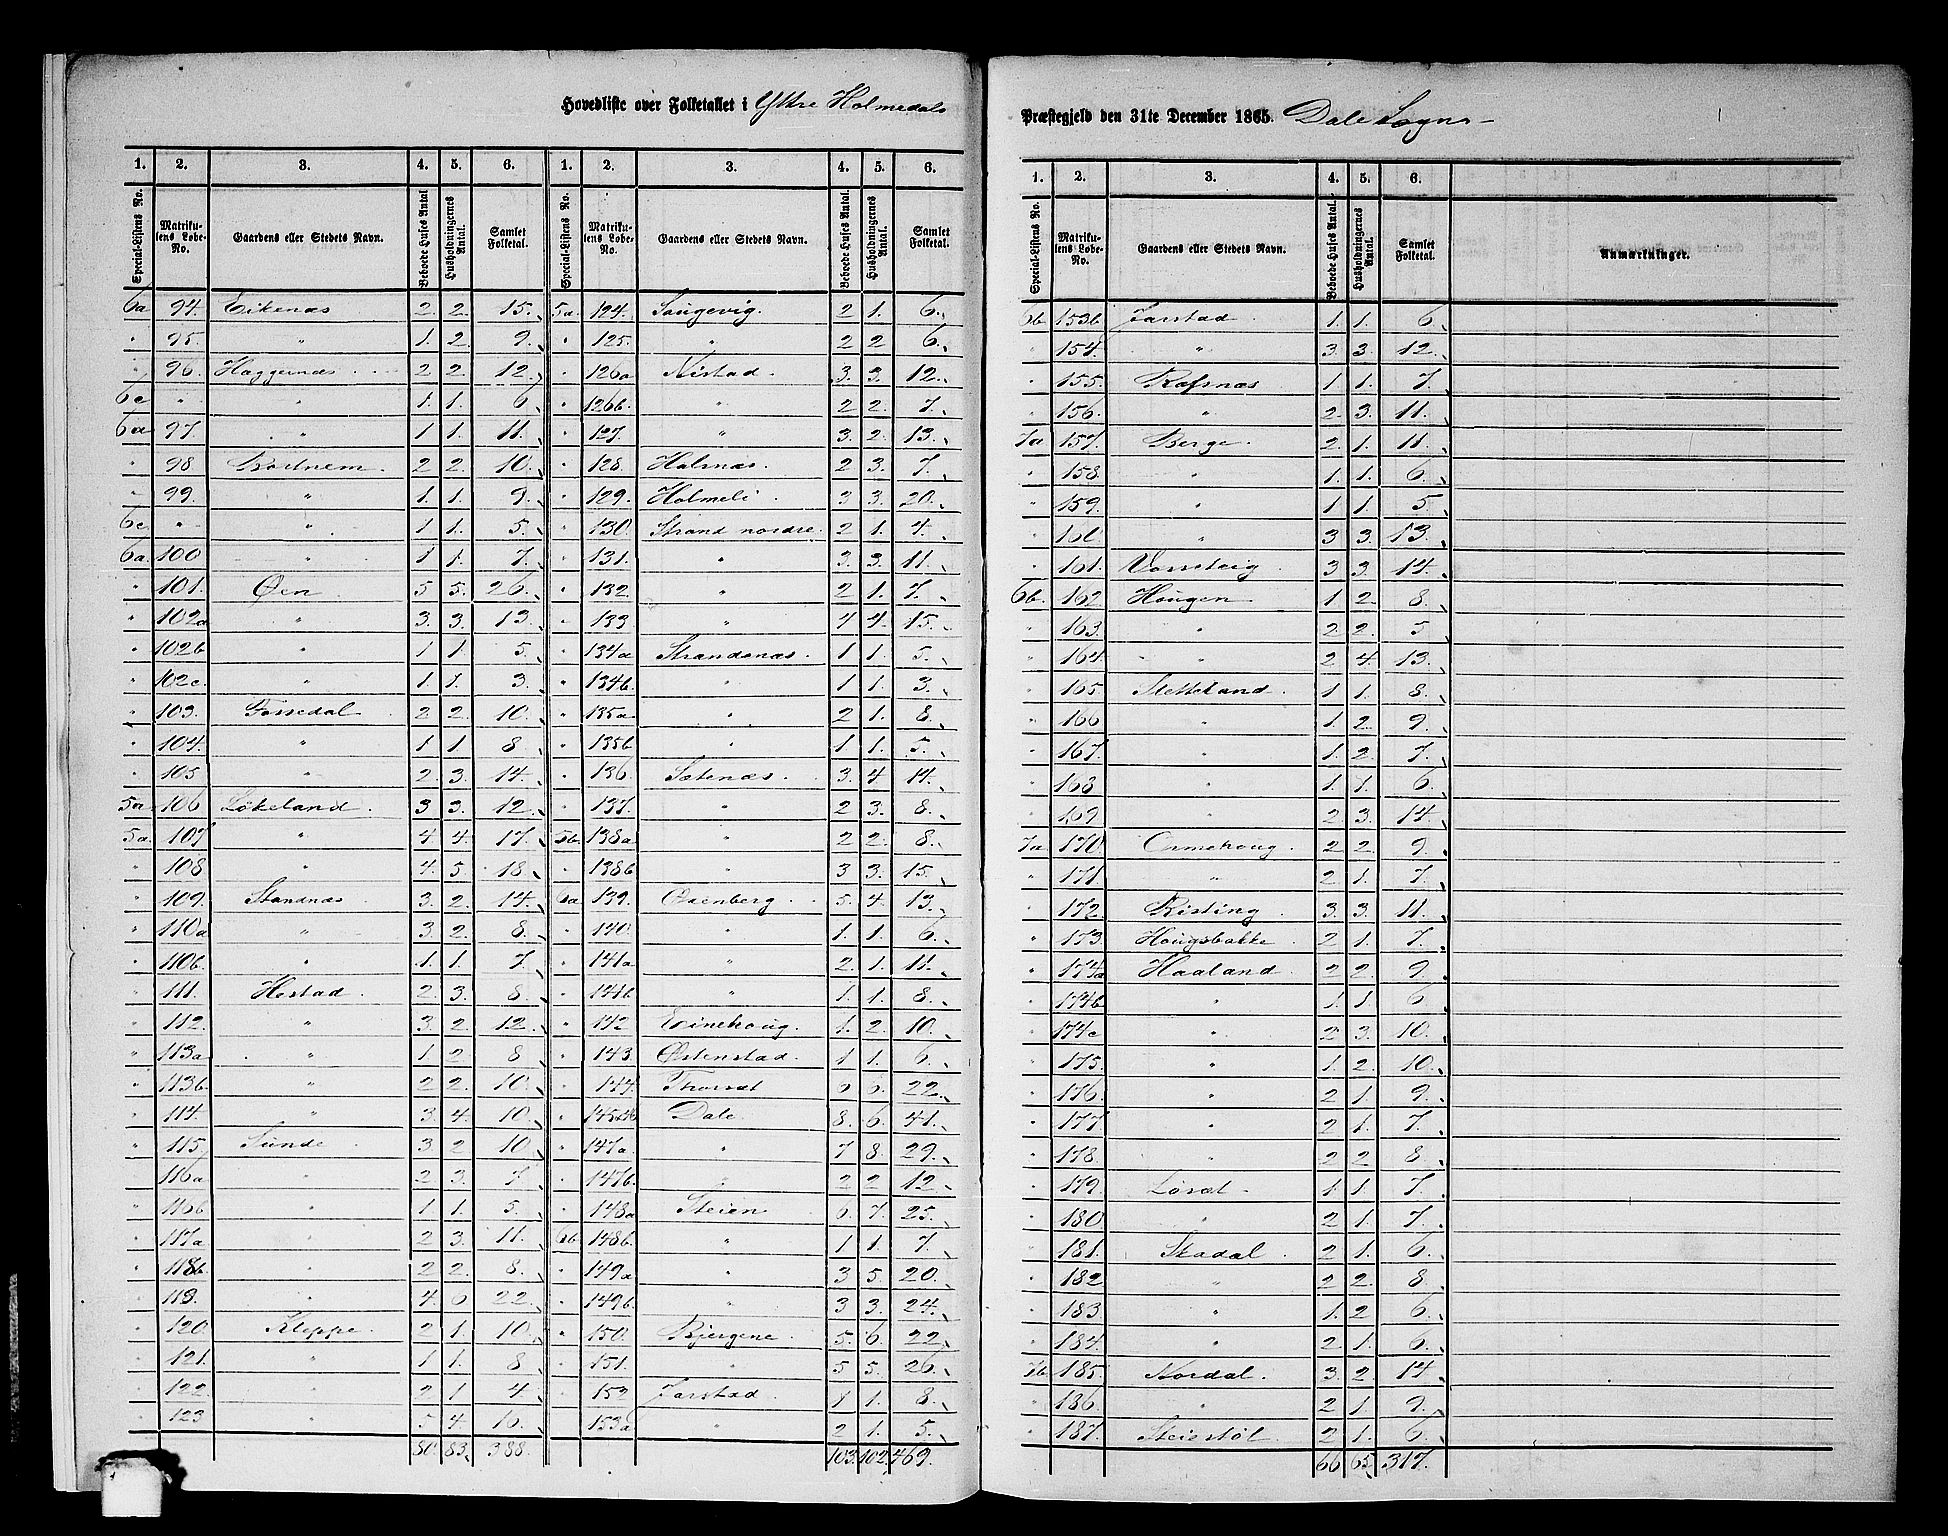 Hovedliste over Folketallet i Yttre Holmedals
Præstegjeld den 31te December 1865. Dale Sogn
1. 2. 3. 4. 5. 6. 1. 2. 3. 4. 5. 6.
Special-Listens No. Matrikulens Løbe-No. Gaardens eller Stedets Navn. Beboede Huses Antal Husholdningernes Antal. Samlet Folketal. Special-Listens No. Matrikulens Løbe-No. Gaardens eller Stedets Navn. Beboede Huses Antal. Husholdningernes Antal. Samlet Folketal.
6a 94. Eikenæs 2. 2. 15. 5a. 124. Saugevig. 2 1. 6.
" 95. " 1. 2. 9. " 125. " 2 2 6.
" 96. Haggernæs 2 2 12. " 126a Nistad 3. 3. 12.
6c " " 1. 1. 6. " 126b. " 2 2. 7.
6a 97. " 1 1. 11. " 127. " 3. 2. 13.
" 98 2 2. 10. " 128. Holmæs. 2 3. 7.
" 99. " 1. 1. 9. " 129. Holmeli 3 3. 20.
6c. " " 1 1. 5. " 130. Strand nordre. 2 1. 4.
6a. 100 " 1 1. 7. " 131. " 3. 3. 11.
" 101. Øen 5 5. 26. " 132. " 2 1. 7.
" 102a " 3. 3. 13. " 133 " 4 4. 15.
" 102b " 1 1. 5. " 134a Strandenæs. 1 1. 5.
" 102c. " 1. 1. 3. " 134b. " 1 1. 3.
" 103. Fossedal 2 2. 10. " 135a " 2 1. 8.
" 104. " 1 1. 8. " 135b " 1 1. 5.
" 105 " 2. 3. 14. " 136. Sætenæs. 3. 4. 14.
5a 106 Løkeland 3 3. 12. " 137. " 2 3. 8.
5a. 107 " 4 4. 17. 5b. 138a " 2 2. 8.
" 108 " 4. 5. 18. " 138b " 3 3. 15.
" 109. Standnæs 3. 2. 14. 6a 139. Oxenberg 5 4. 13.
" 110a " 3. 2. 8. " 140. " 1. 1. 6.
" 110b. " 1 1. 7. " 141a " 2. 1. 11.
" 111. Hestad 2. 3. 8. " 141b " 1. 1. 8.
" 112. " 3. 2. 12. " 142 Erinehoug. 1. 2. 10.
" 113a " 1 2. 8 " 143. Østenstad. 1 1. 6.
" 113b. " 2 2. 10. " 144. Thorsæt 6 6. 22.
" 114. " 3 4. 10. " Dale 8. 6. 41.
" 115. Sunde 3 2 10. " 147a. " 7 8. 29.
" 116a " 2 3. 7. " 147b. " 2 2. 12.
" 116b " 1 1. 5. " 148a Steien 6. 7. 25.
" 117a " 2 3. 11. 6b. 148b. " 1 1. 7.
" 118b. " 2 2. 8. " 149a " 3 5. 20.
" 119. " 4. 6 22. " 149b. " 3 3. 24.
" 120. Kleppe 2 1. 10. " 150. Bjergene 5. 6. 22.
" 121. " 1 1. 8. " 151. " 5 5. 26.
" 122. " 2 1 4. " 152 Jarstad 1 1. 8.
" 123 " 5 4. 10. " 153a " 2 1. 5.
80. 83. 388. 103. 102. 469.
1. 2. 3. 4. 5. 6.
Special-Listens No. Matrikulens Løbe-No. Gaardens eller Stedets Navn. Beboede Huses Antal. Husholdningernes Antal. Samlet Folketal. Anmærkninger.
6b 153b Jarstad 1. 1. 6.
" 154. " 3. 3. 12.
" 155. Rafsnæs 1 1. 7.
" 156. " 2. 3. 11.
7a 157. Berge. 2. 1. 11.
" 158. " 1 1. 6.
" 159. " 1 1. 5.
" 160. " 3 3. 13.
" 161. Vassteig 3 3. 14.
6b. 162 Hougen 1 2. 8.
" 163. " 2 2. 5
" 164. " 2 4. 13.
" 165. Sletteland 1 1. 8.
" 166 " 1. 2. 9.
" 167. " 1. 2 7.
" 168 " 1 1. 6.
" 169 " 2. 3. 14.
7a 170. Ormehoug. 2 2. 9.
" 171. " 2 1. 7.
" 172. Risting 3. 3. 11.
" 173. Hougsbakke 2 1. 7.
" 174a Haaland. 2 2. 9.
" 174b " 1. 1. 6.
" 174c " 2 3. 10.
" 175. " 1. 2. 10.
" 176. " 2 1. 9.
" 177. " 2 1. 7.
" 178. " 2 2 8.
" 179. Løsæt 1. 1. 7.
" 180. " 2 1. 7.
" 181. Skadal. 2 1. 6.
" 182 " 2 2. 8.
" 183 " 1. 2 6.
" 184. " 2 1. 6.
7b 185. Nordal. 3. 2. 14.
" 186. " 2 1 9.
" 187. Steiestøl. 2 1. 6.
66 65. 317.